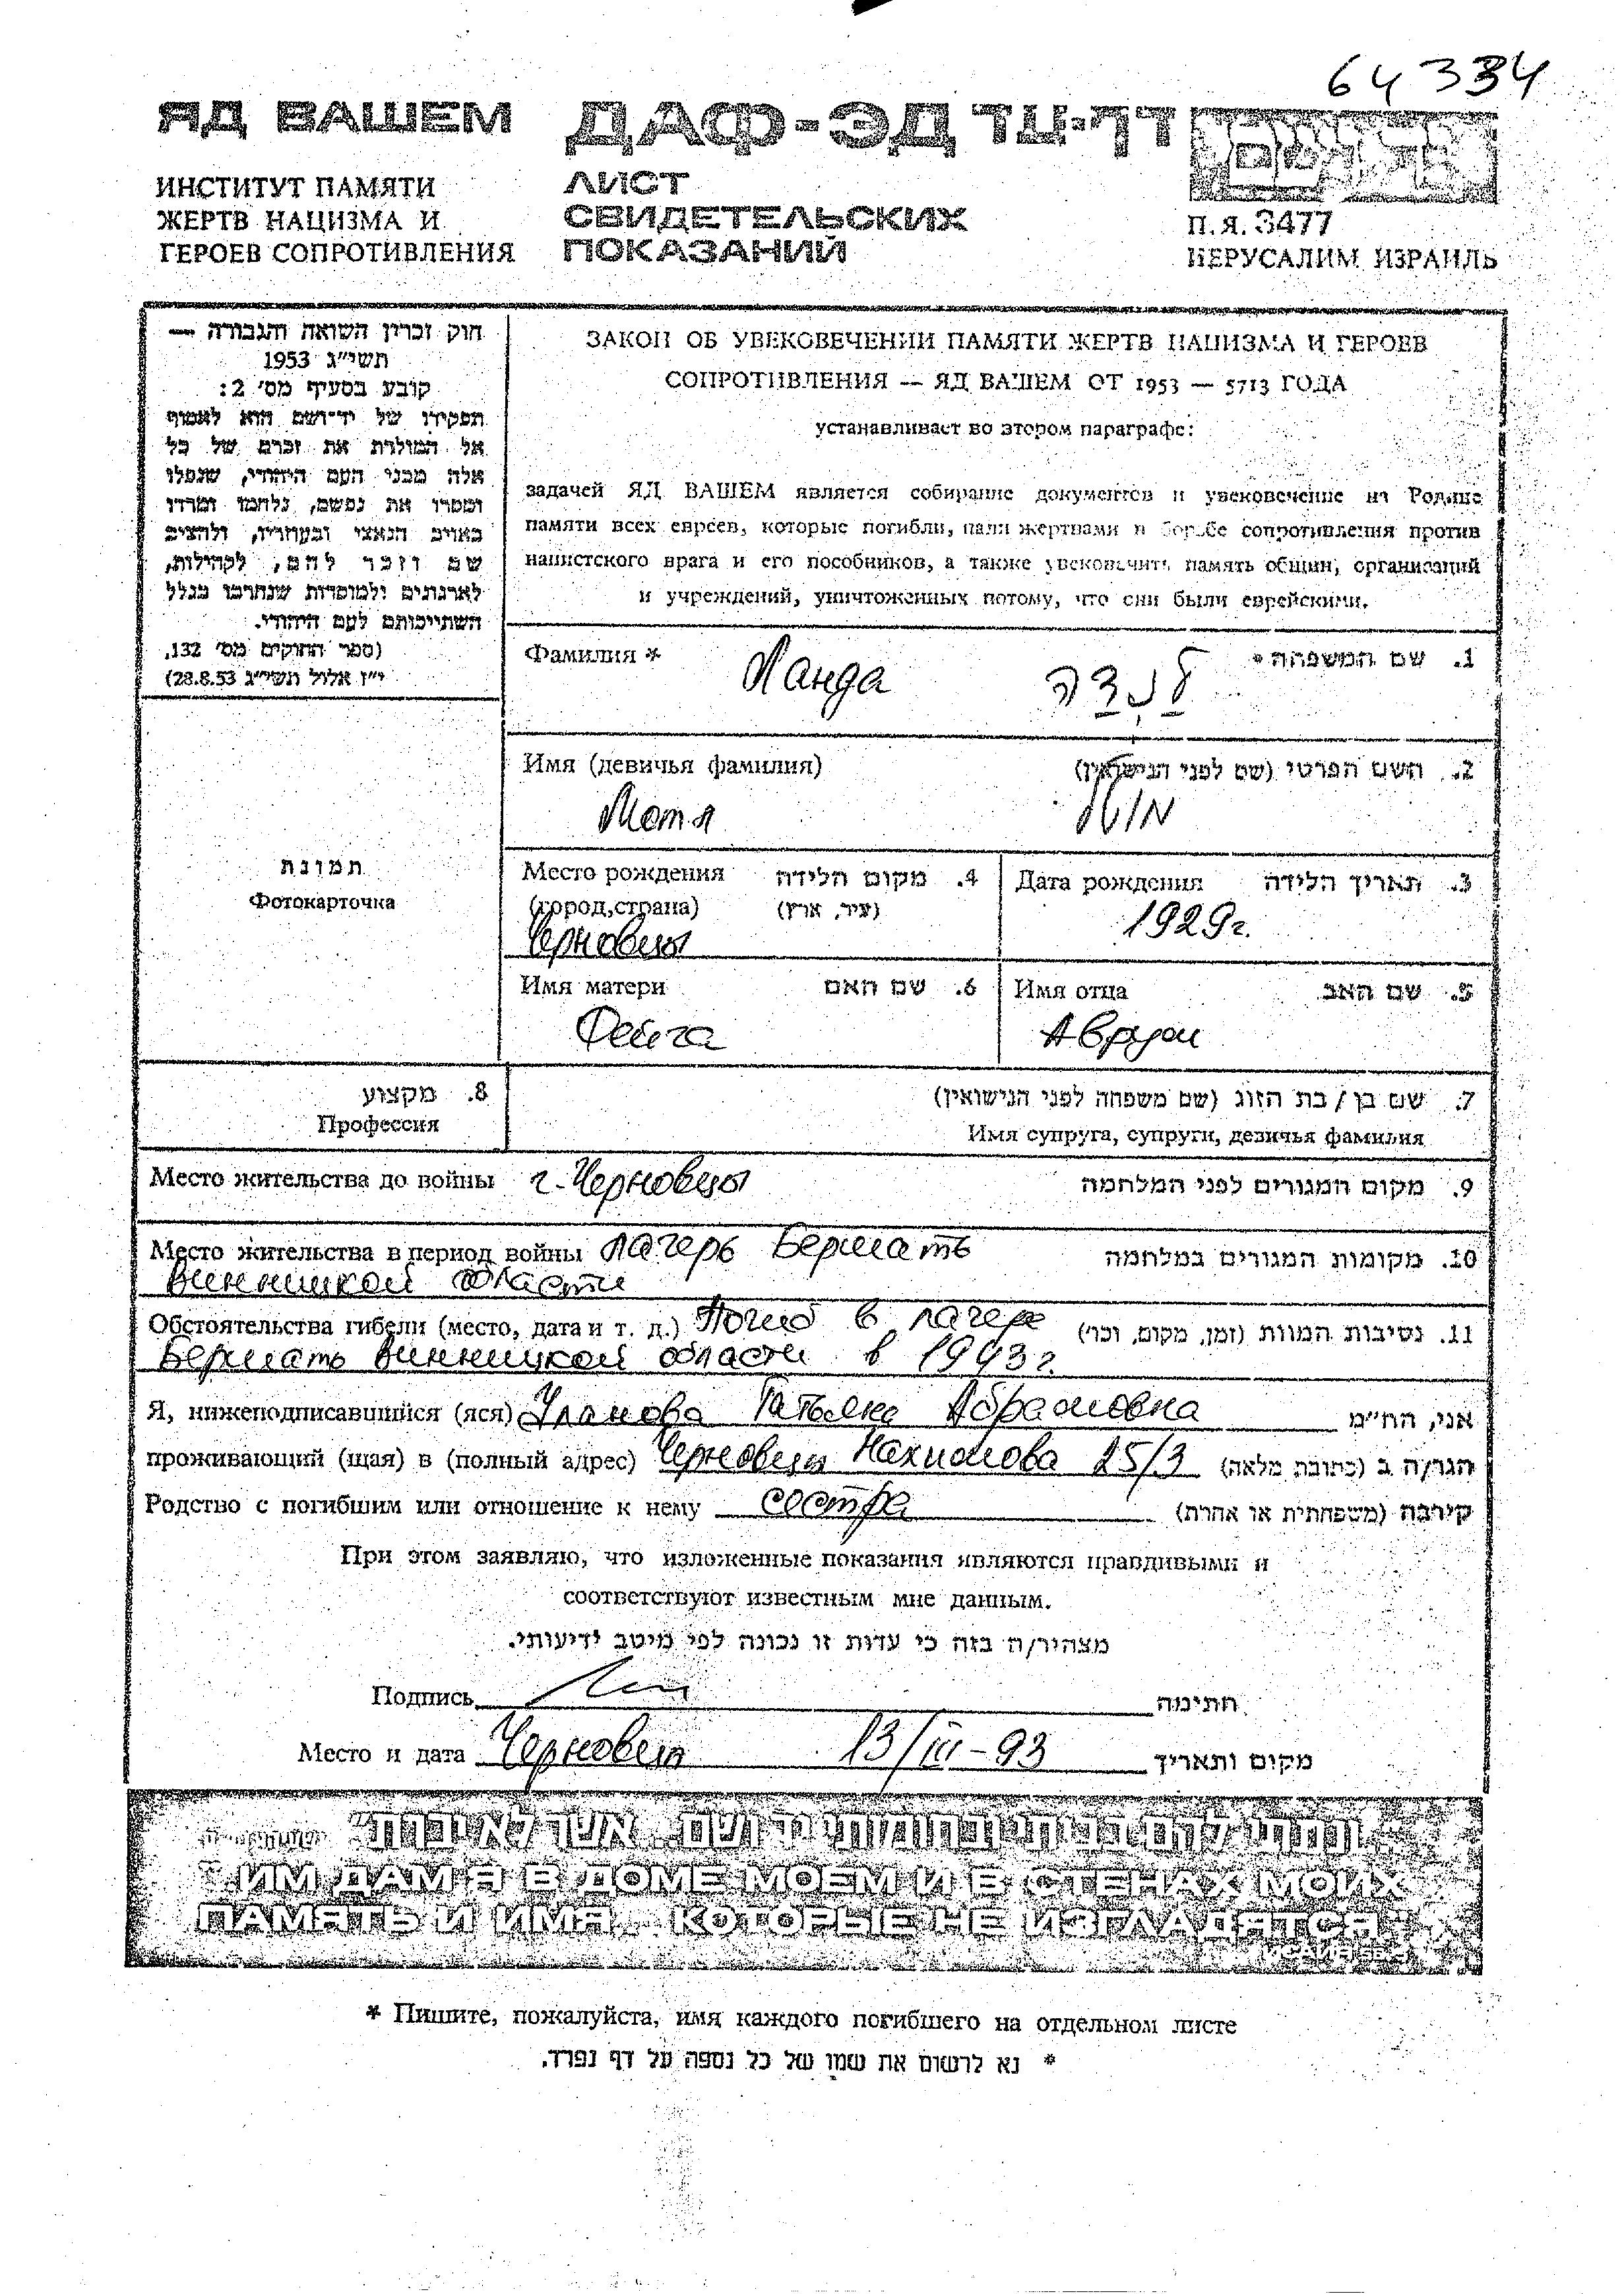 64334
ЯД ВАШЕМ ДАФ-ЭД דף-עד
ИНСТИТУТ ПАМЯТИ
ЖЕРТВ НАЦИЗМА И
ГЕРОЕВ СОПРОТИВЛЕНИЯ
ЛИСТ
СВИДЕТЕЛЬСКИХ
ПОКАЗАНИЙ
П.Я. 3477
ИЕРУСАЛИМ, ИЗРАИЛЬ
חוק זכרון השואה והגבורה —
תשי״ג 1953
קובע בסעיף מס׳ 2:
תפקידו של יד־ושם הוא לאסוף
אל המולדת את זכרם של כל
אלה מבני העם היהודי, שנפלו
ומסרו את נפשם, נלחמו ומרדו
באויב הנאצי ובעוזריו, ולהציב
שם וזכר להם, לקהילות,
לארגונים ולמוסדות שנחרבו בגלל
השתייכותם לעם היהודי.
(ספר החוקים מס׳ 132,
י״ז אלול תשי״ג 28.8.53)
ЗАКОН ОБ УВЕКОВЕЧЕНИИ ПАМЯТИ ЖЕРТВ НАЦИЗМА И ГЕРОЕВ
СОПРОТИВЛЕНИЯ — ЯД ВАШЕМ ОТ 1953 — 5713 ГОДА
устанавливает во втором параграфе:
задачей ЯД ВАШЕМ является собирание документов и увековечение на Родине
памяти всех евреев, которые погибли, пали жертвами в борьбе сопротивления против
нацистского врага и его пособников, а также увековечить память общин, организаций
и учреждений, уничтоженных потому, что они были еврейскими.
Фамилия * Ланда לנדה 1. שם המשפחה *
Имя (девичья фамилия) 2. השם הפרטי (שם לפני הנישואין)
Мотя
תמונה
Фотокарточка
Место рождения 4. מקום הלידה
(город, страна) (עיר, ארץ)
Черновцы
Дата рождения 3. תאריך הלידה
1929г.
Имя матери 6. שם האם
Фейга
Имя отца 5. שם האב
Аврум
8. מקצוע
Профессия
7. שם בן / בת הזוג (שם משפחה לפני הנישואין)
Имя супруга, супруги, девичья фамилия
Место жительства до войны г. Черновцы 9. מקום המגורים לפני המלחמה
Место жительства в период войны лагерь Бершать 10. מקומות המגורים במלחמה
Винницкой области
Обстоятельства гибели (место, дата и т. д.) Погиб в лагере 11. נסיבות המוות (זמן, מקום, וכו׳)
Бершать Винницкой области в 1943г.
Я, нижеподписавшийся (яся) Уланова Татьяна Абрамовна אני, הח״מ
проживающий (щая) в (полный адрес) Черновцы Нахимова 25/3 הגר/ה ב (כתובת מלאה)
Родство с погибшим или отношение к нему сестра קירבה (משפחתית או אחרת)
При этом заявляю, что изложенные показания являются правдивыми и
соответствуют известным мне данным.
מצהיר/ה בזה כי עדות זו נכונה לפי מיטב ידיעותי.
Подпись חתימה
Место и дата Черновцы 13/III-93 מקום ותאריך
"ונתתי להם בביתי ובחומותי יד ושם... אשר לא יכרת"
"ИМ ДАМ Я В ДОМЕ МОЕМ И В СТЕНАХ МОИХ
ПАМЯТЬ И ИМЯ... КОТОРЫЕ НЕ ИЗГЛАДЯТСЯ"
* Пишите, пожалуйста, имя каждого погибшего на отдельном листе
* נא לרשום את שמו של כל נספה על דף נפרד.